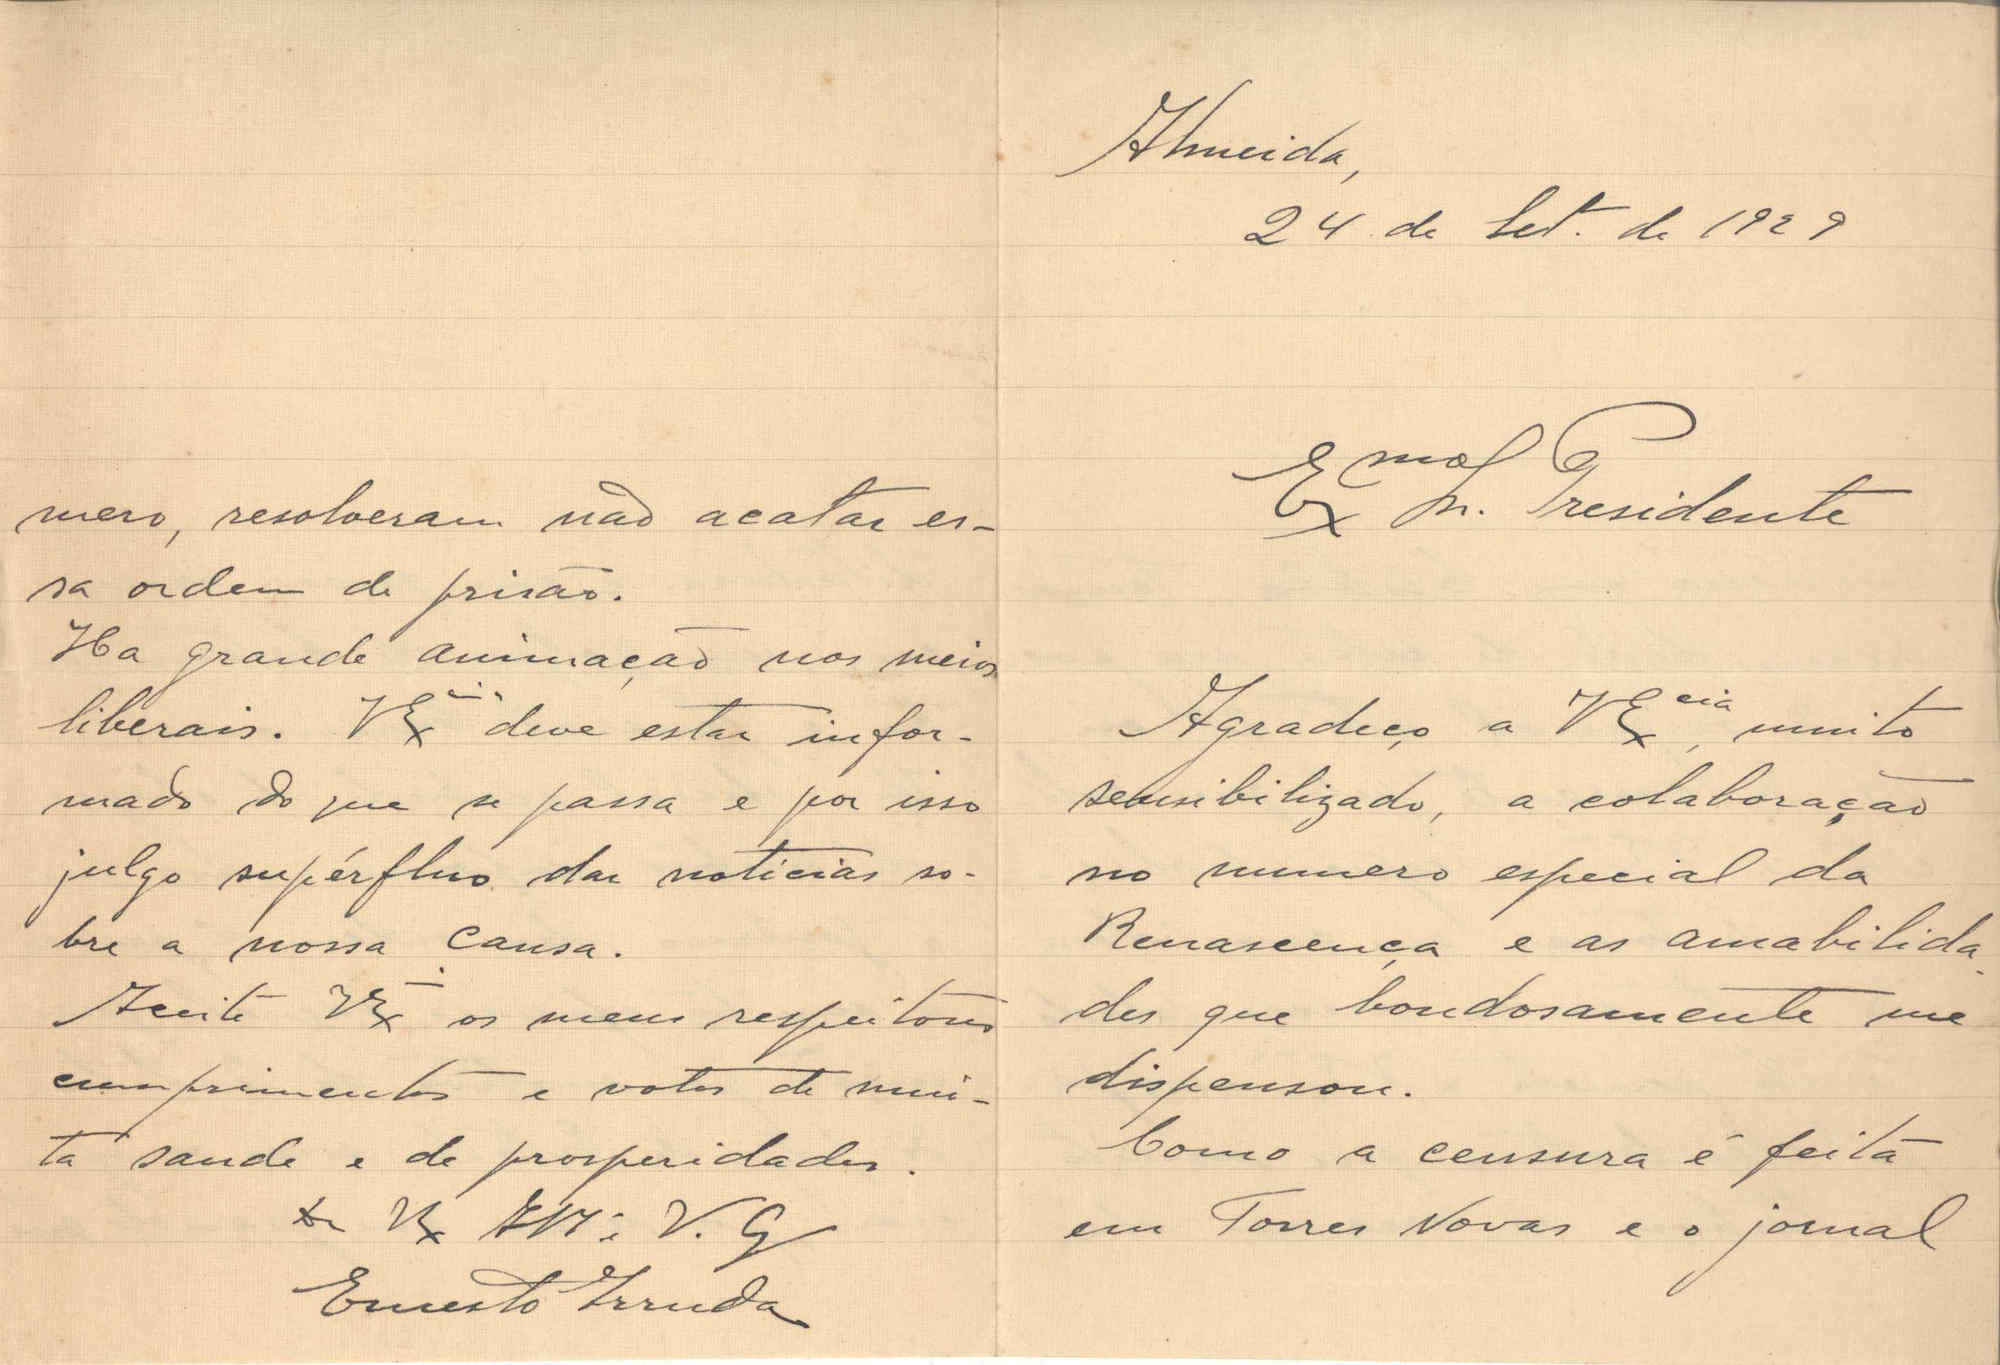 Almeida,
24 de Set. de 1929
Exmo Sr. Presidente
Agradeço a V Excia, muito
sensibilizado, a colaboração
no numero especial da
Renascença e as amabilida-
des que bondosamente me
dispensou.
Como a censura é feita
em Torres Novas e o jornal
mero, resolveram não acatar es-
sa ordem de prisão.
Ha grande animação nos meios
liberais. V Excia deve estar infor-
mado do que se passa e por isso
julgo supérfluo dar noticias so-
bre a nossa causa.
Aceite V Ex os meus respeitosos
cumprimentos e votos de mui-
ta saude e de prosperidades.
De V Ex V. G
Ernesto Arruda